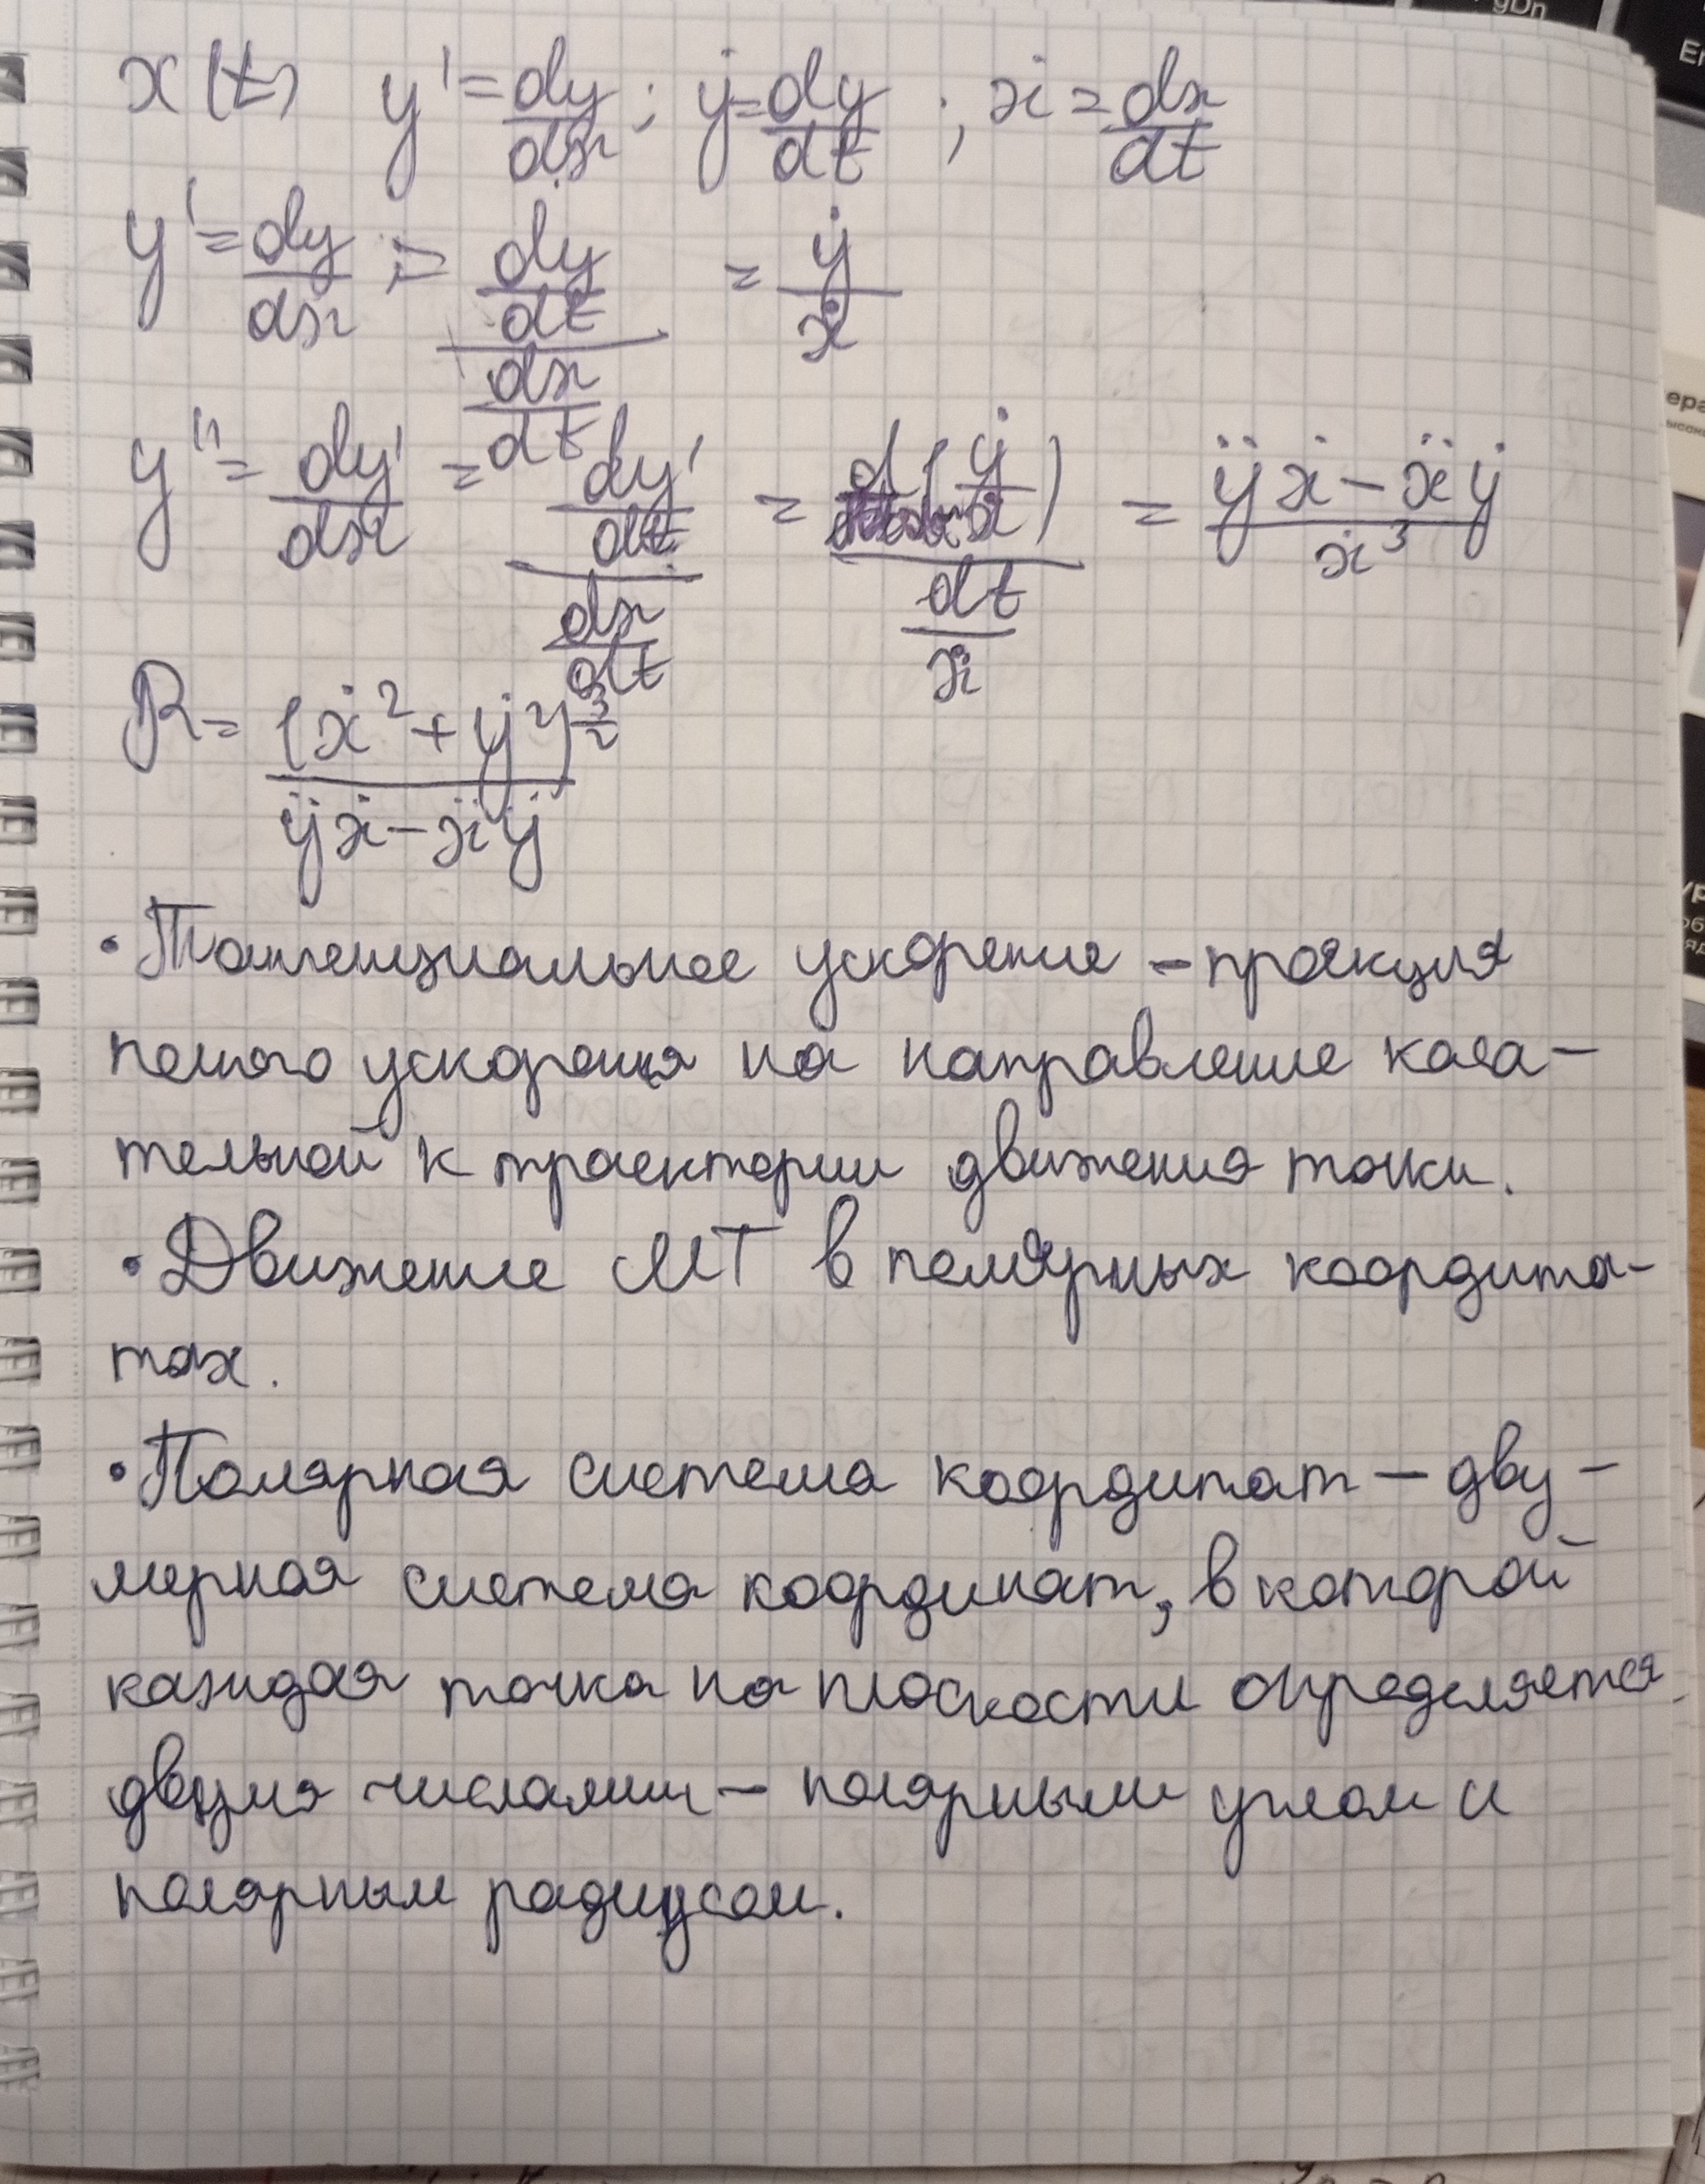 x(t) y' = dy/dx ; ẏ = dy/dt ; ẋ = dx/dt
y' = dy/dx = (dy/dt)/(dx/dt) = ẏ/ẋ
y'' = dy'/dx = (dy'/dt)/(dx/dt) = (d(ẏ/ẋ)/dt)/ẋ = (ÿẋ - ẍẏ)/ẋ³
R = (ẋ² + ẏ²)^(3/2)/(ÿẋ - ẍẏ)
• Тангенциальное ускорение – проекция
полного ускорения на направление каса-
тельной к траектории движения точки.
• Движение МТ в полярных координа-
тах.
• Полярная система координат – дву-
мерная система координат, в которой
каждая точка на плоскости определяется
двумя числами – полярным углом и
полярным радиусом.